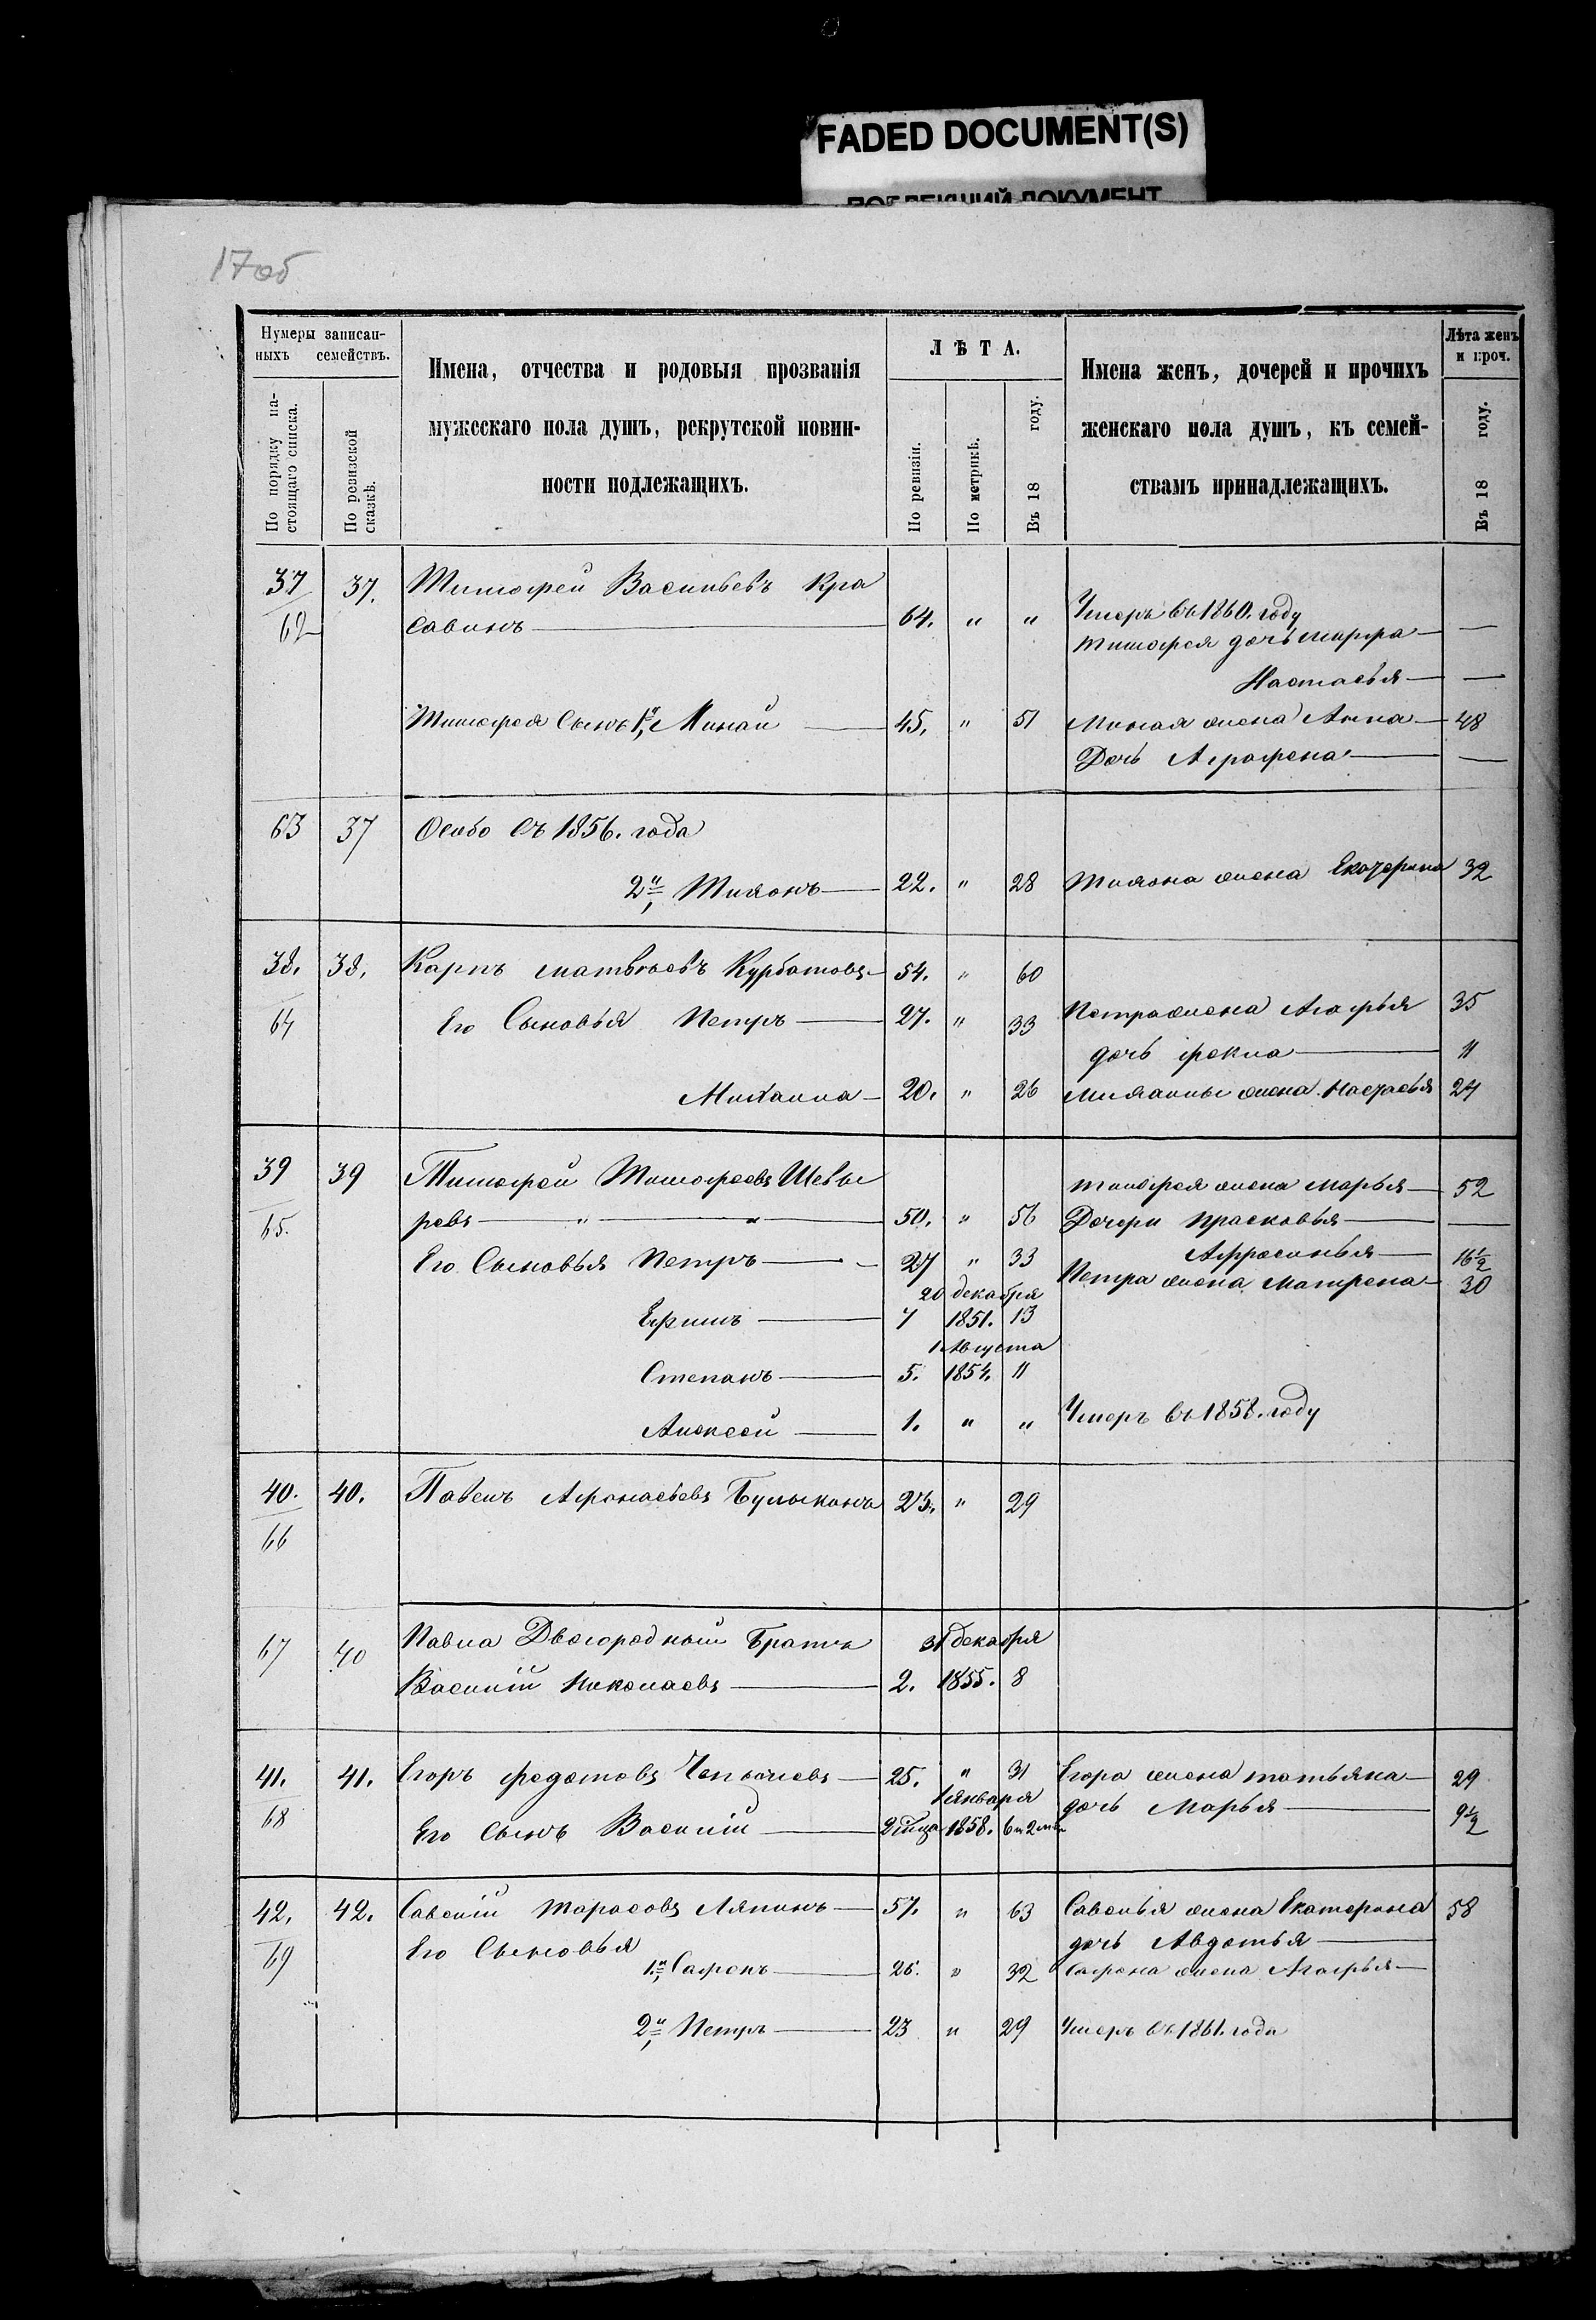 FADED DOCUMENT(S)
ПОБЛЕКШИЙ ДОКУМЕНТ
17об
Нумеры записан-
ныхъ семействъ.
По порядку на-
стоящаго списка.
По ревизской
сказкѣ.
Имена, отчества и родовыя прозванія
мужескаго пола душъ, рекрутской повин-
ности подлежащихъ.
ЛѢТА.
По ревизіи.
По метрикѣ.
Въ 18 году.
Имена женъ, дочерей и прочихъ
женскаго пола душъ, къ семей-
ствамъ принадлежащихъ.
Лѣта женъ
и проч.
Въ 18 году.
37 37. Тимофей Васильевъ Кра
62 савинъ — 64. " " Умеръ въ 1860. году
Тимофея дочь Марфа — —
Настасья — —
Тимофея Сынъ 1й Минай — 45. " 51 Миная жена Анна — 48
Дочь Аграфена — —
63 37 Особо съ 1856. года
2й Тихонъ — 22. " 28 Тихона жена Екатерина 32
38. 38. Карпъ Матвѣевъ Курбатовъ — 54. " 60
64 Его Сыновья Петръ — 27. " 33 Петра жена Агафья 35
дочь Фекла — 11
Михаила — 20. " 26 Михаилы жена Настасья 24
39 39 Тимофей Тимофеевъ Шевы
Тимофея жена Марья — 52
65. ревъ — " — " — 50. " 56 Дочери Прасковья — —
Его Сыновья Петръ — 27 " 33 Афросинья — 16½
20 декабря Петра жена Матрена — 30
Ефимъ — 7 1851. 13
1 Августа
Степанъ — 5. 1854. 11
Алексей — 1. " " Умеръ въ 1858. году
40. 40. Павелъ Афонасьевъ 23. " 29
66
67 40 Павла Двоюродный Братъ 31 декабря
Василій Николаевъ — 2. 1855. 8
41. 41. Егоръ Федотовъ — 25. " 31 Егора жена Татьяна — 29
1 января
68 Его Сынъ Василій — 1858. дочь Марья — 9½
42. 42. Савелій Тарасовъ Ляпинъ — 57. " 63 Савелья жена Екатерина 58
69 Его Сыновья дочь Авдотья —
1й Сафонъ — 26. " 32 Сафона жена Агафья —
2й Петръ — 23 " 29 Умеръ въ 1861. года